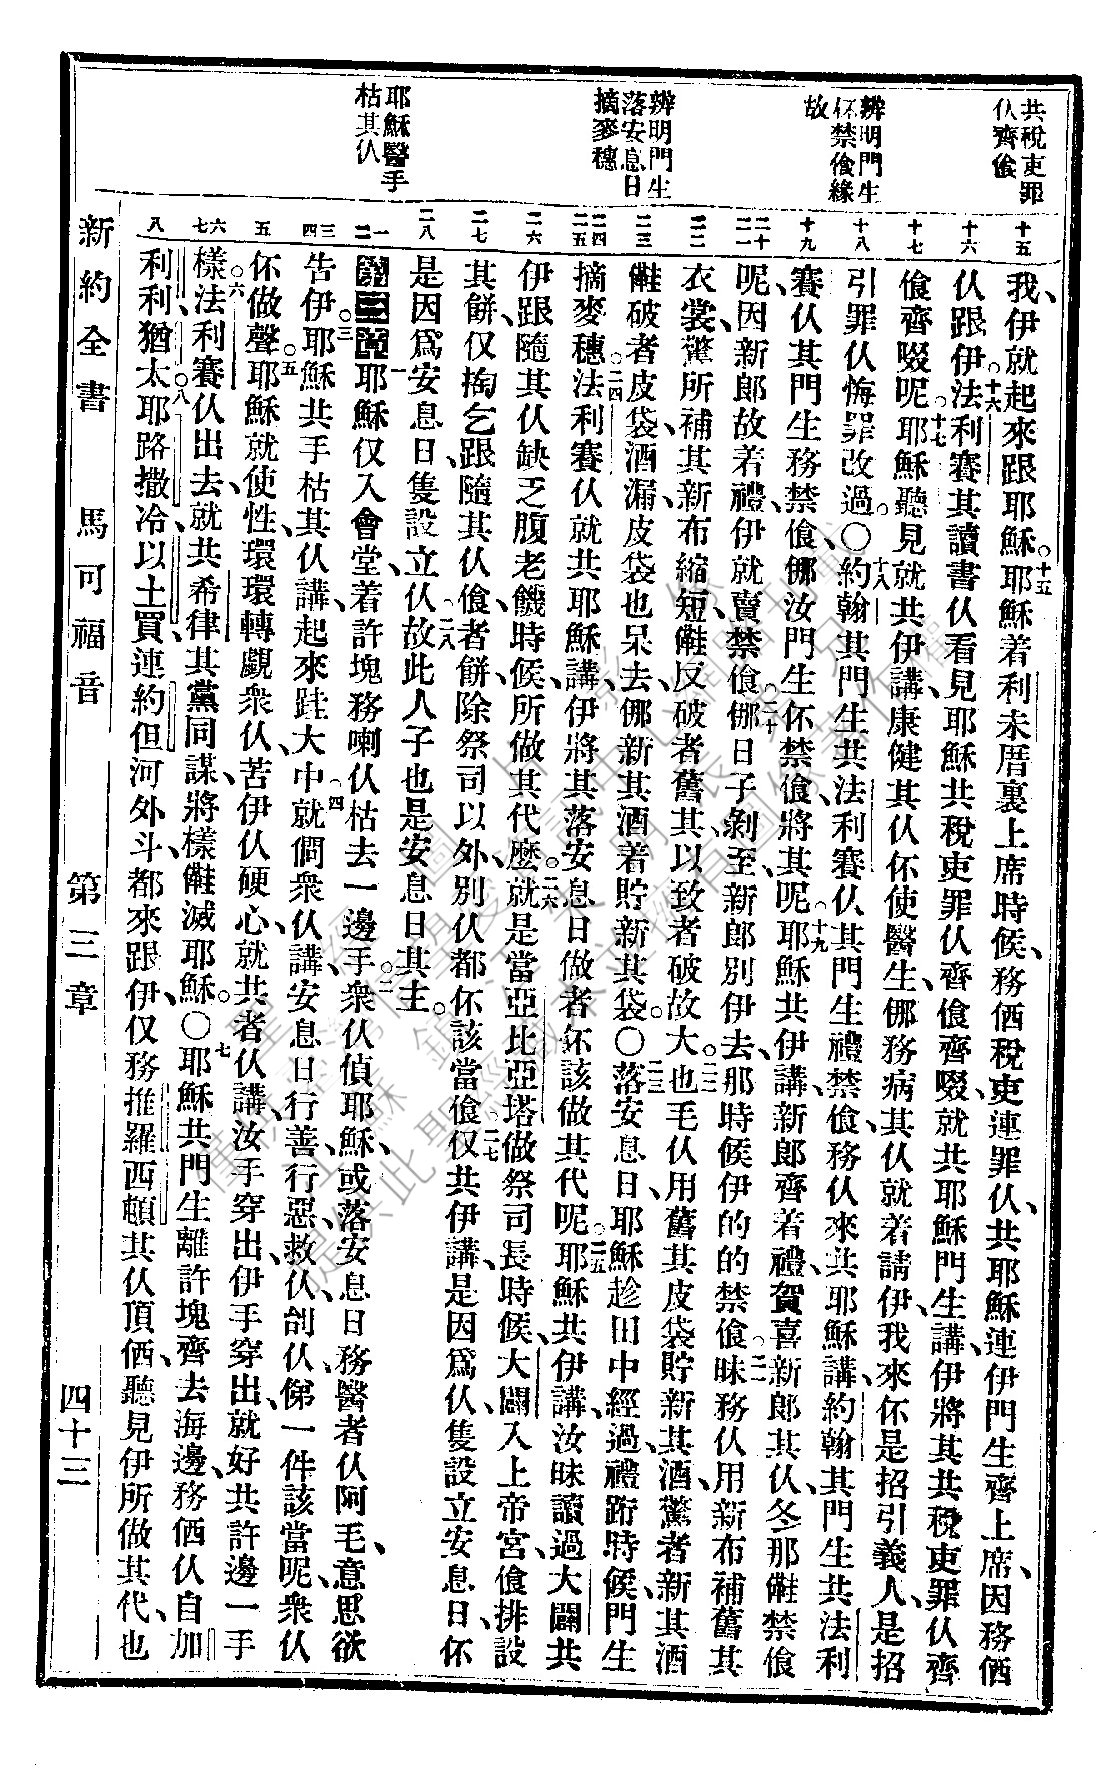 共稅吏罪
仫齊飧
辨明門生
伓禁飧緣
故
辨明門生
落安息日
摘麥穗
耶穌醫手
枯其仫
十五
十六
十七
十八
十九
二十
二一
二二
二三
二四
二五
二六
二七
二八
一
二
三
四
五
六
七
八
我、伊就起來跟耶穌。十五耶穌着利未厝裏上席時候、務価稅吏連罪仫、共耶穌連伊門生齊上席、因務価
仫跟伊。十六法利賽其讀書仫看見耶穌共稅吏罪仫齊飧齊啜、就共耶穌門生講、伊將其共稅吏罪仫齊
飧齊啜呢。十七耶穌聽見就共伊講、康健其仫伓使醫生、㑚務病其仫就着請伊、我來伓是招引義人、是招
引罪仫悔罪改過。〇十八約翰其門生共法利賽仫其門生禮禁飧、務仫來共耶穌講、約翰其門生共法利
賽仫其門生務禁飧、㑚汝門生伓禁飧、將其呢。十九耶穌共伊講、新郎齊着禮、賀喜新郎其仫、冬那㒕禁飧
呢、因新郎故着禮、伊就賣禁飧。二十㑚日子剝至、新郎別伊去、那時候伊的的禁飧。二一昧務仫用新布補舊其
衣裳、驚所補其新布縮短、㒕反破者舊其、以致者破故大。二二也毛仫用舊其皮袋貯新其酒、驚者新其酒
㒕破者皮袋、酒漏、皮袋也呆去、㑚新其酒着貯新其袋。〇二三落安息日、耶穌趁田中經過、禮跨時候、門生
摘麥穗。二四法利賽仫就共耶穌講、伊將其落安息日做者伓該做其代呢。二五耶穌共伊講、汝昧讀過大闢共
伊跟隨其仫缺乏腹老饑時候、所做其代麽。二六就是當亞比亞塔做祭司長時候、大闢入上帝宮、飧排設
其餅、仅掏乞跟隨其仫飧、者餅除祭司以外、別仫都伓該當飧。二七仅共伊講、是因爲仫隻設立安息日、伓
是因爲安息日隻設立仫。二八故此人子也是安息日其主。
第三章一耶穌仅入會堂、着許塊務喇仫枯去一邊手。二衆仫偵耶穌、或落安息日務醫者仫阿毛、意思欲
告伊。三耶穌共手枯其仫講、起來跬大中。四就倜衆仫講、安息日行善行惡、救仫刣仫、俤一件該當呢、衆仫
伓做聲。五耶穌就使性、環環轉覷衆仫、苦伊仫硬心、就共者仫講、汝手穿出、伊手穿出、就好共許邊一手
樣。六法利賽仫出去、就共希律其黨同謀、將樣㒕滅耶穌。〇七耶穌共門生離許塊齊去海邊、務価仫自加
利利、猶太、八耶路撒冷、以土買、連約但河外斗都來跟伊、仅務推羅西頓其仫頂価、聽見伊所做其代、也
新約全書　馬可福音　第三章　四十三